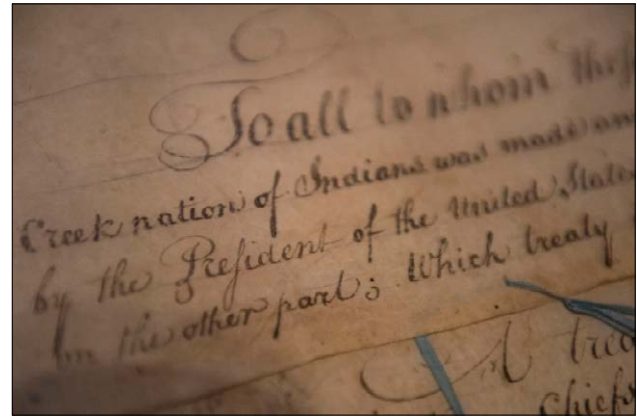 To all to whom these
Creek nation of Indians was made an
by the President of the United State
on the other part; Which treaty
A trea
Chiefs